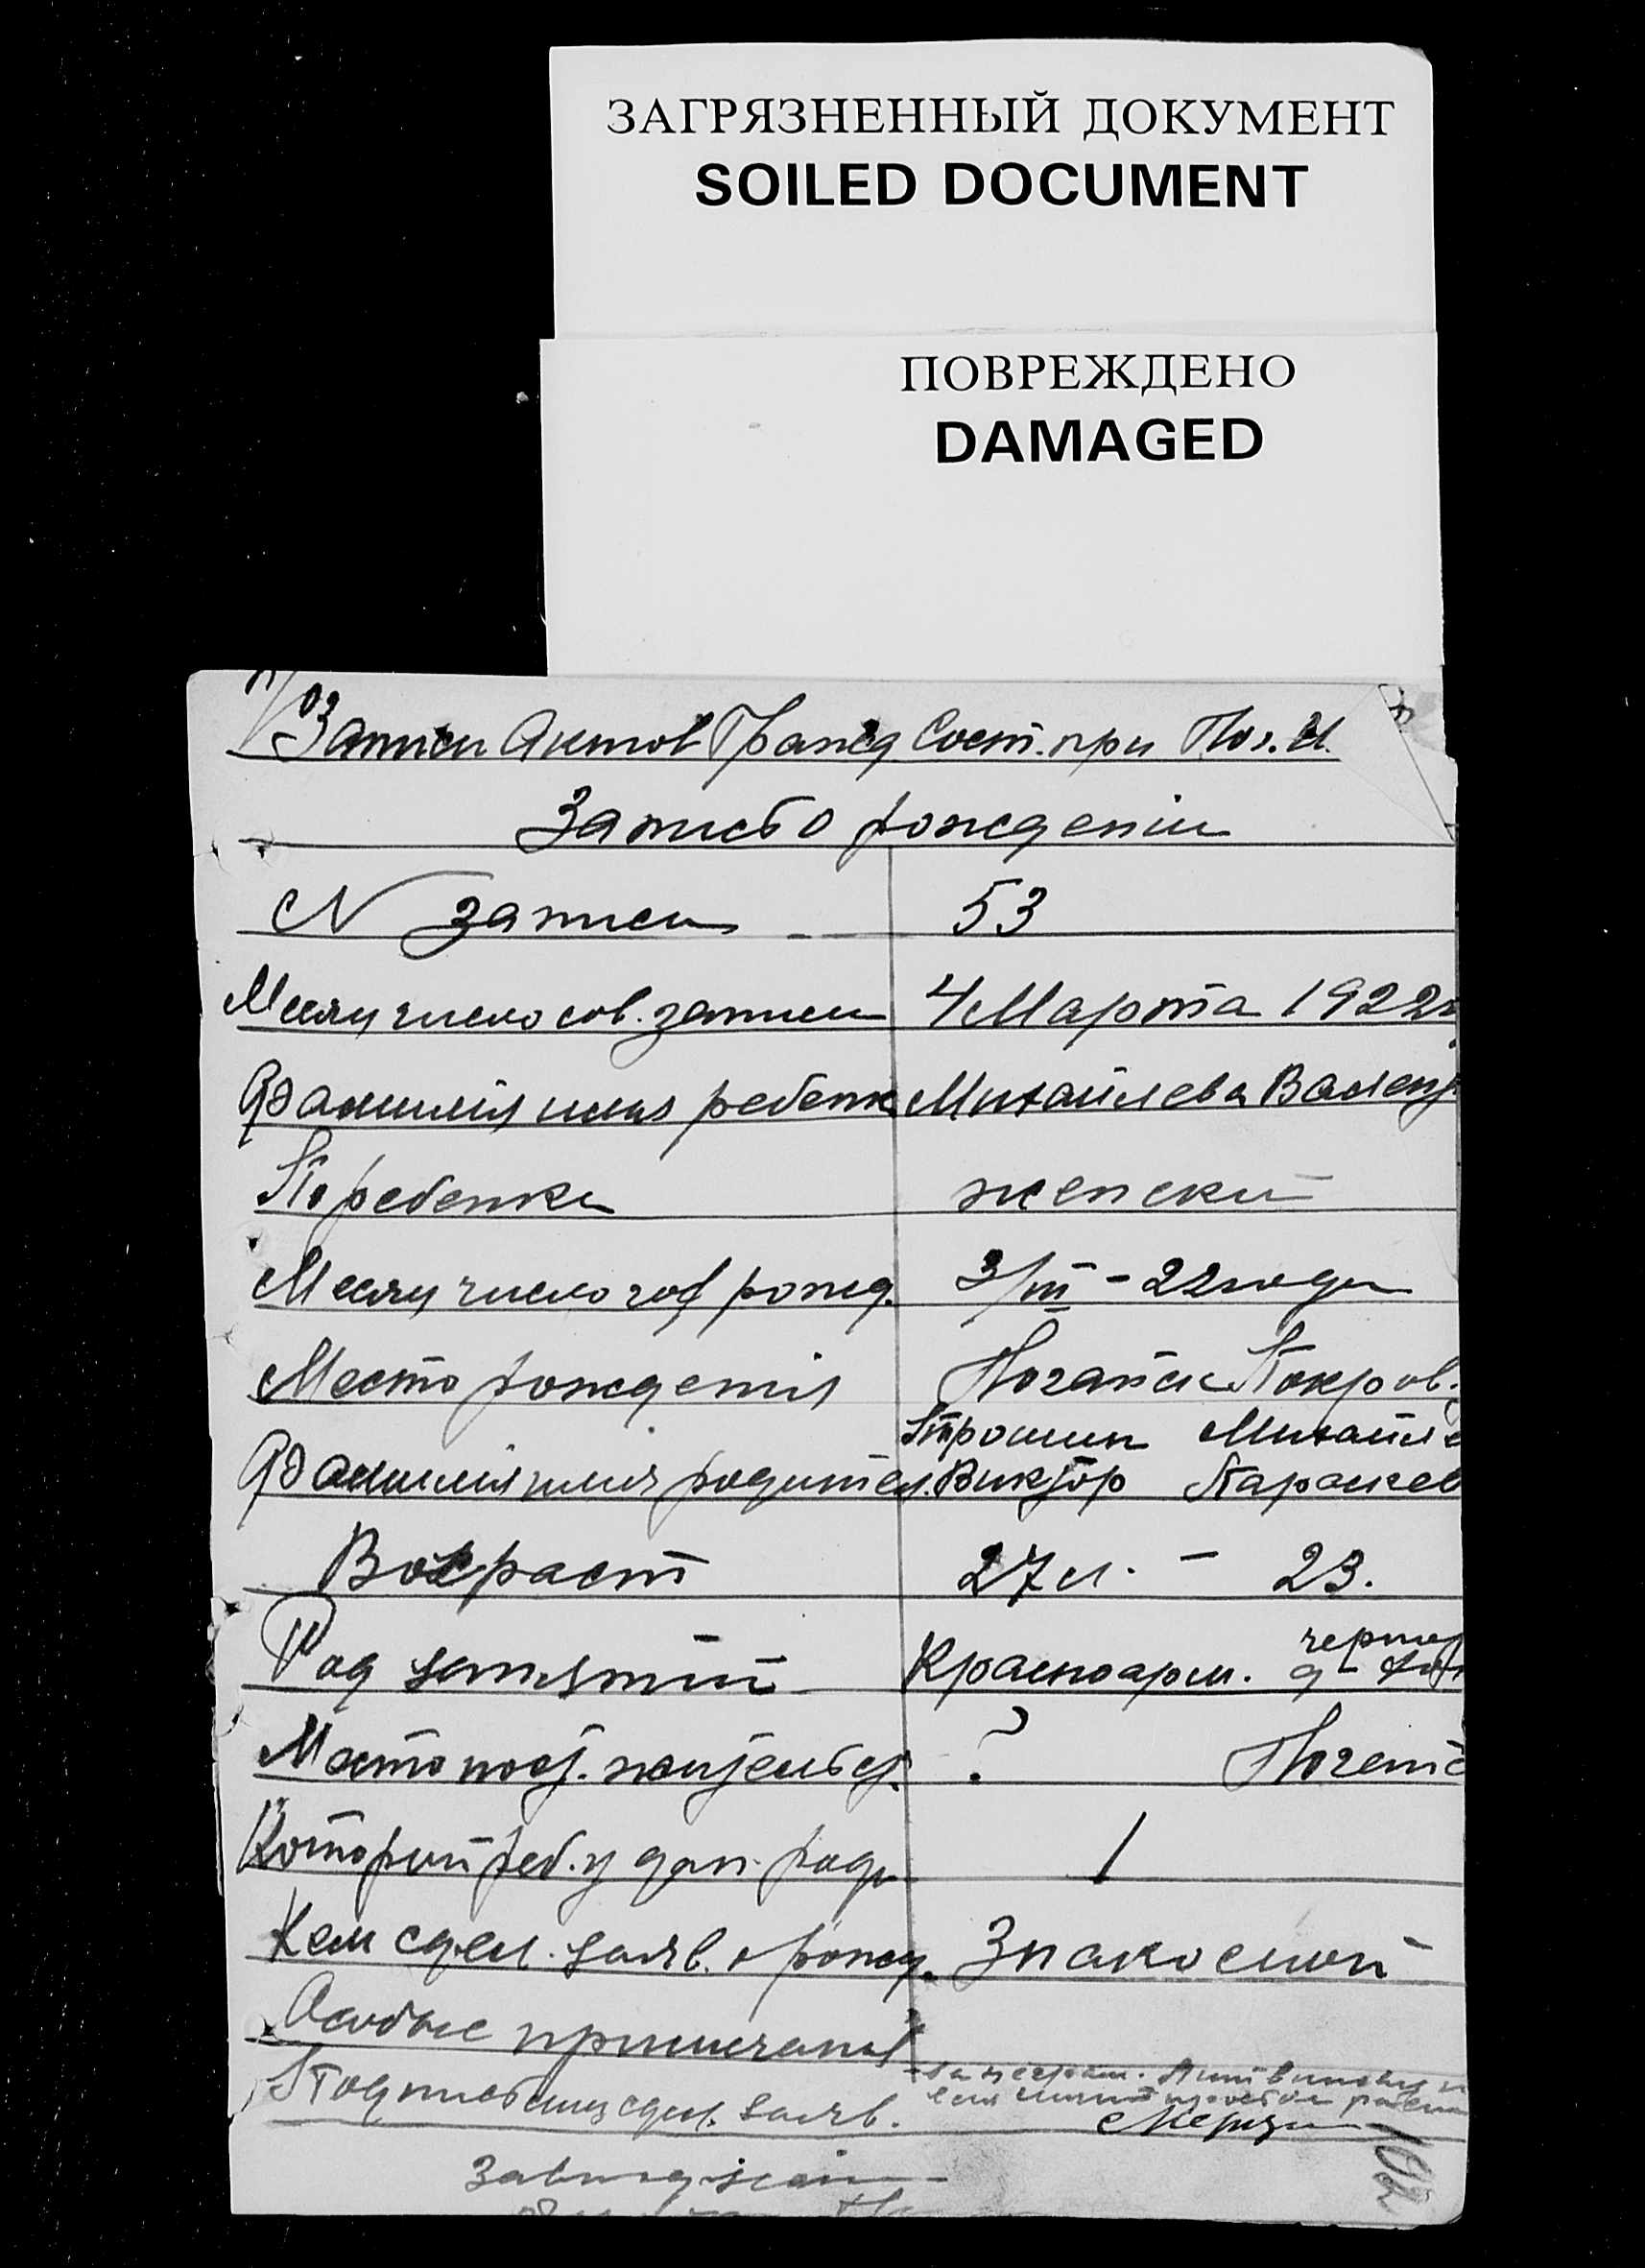 ЗАГРЯЗНЕННЫЙ ДОКУМЕНТ
SOILED DOCUMENT
ПОВРЕЖДЕНО
DAMAGED
Записи Актов Гражд. Сост. при Ног. И.
Запись о рожденіи
N записи 53
Месяц число сов. записи 4 Марта 1922 г
Фамилія имя ребенк Михайлева Вален
По ребенка женский
Месяц число год рожд. 3/III - 22 года
Место рожденія Ногайск Покров.
Трошин Михайле
Фамилія имя родител. Виктор Параскев
Возраст 27 л. - 23.
Род занятий Красноарм.
Место пост. жительст. ? Ногайс
Который реб. у дан. роди 1
Кем сдел. заяв. о рожд. Знакомой
Особые примечанія
Подпись лиц сдел. заяв.
102